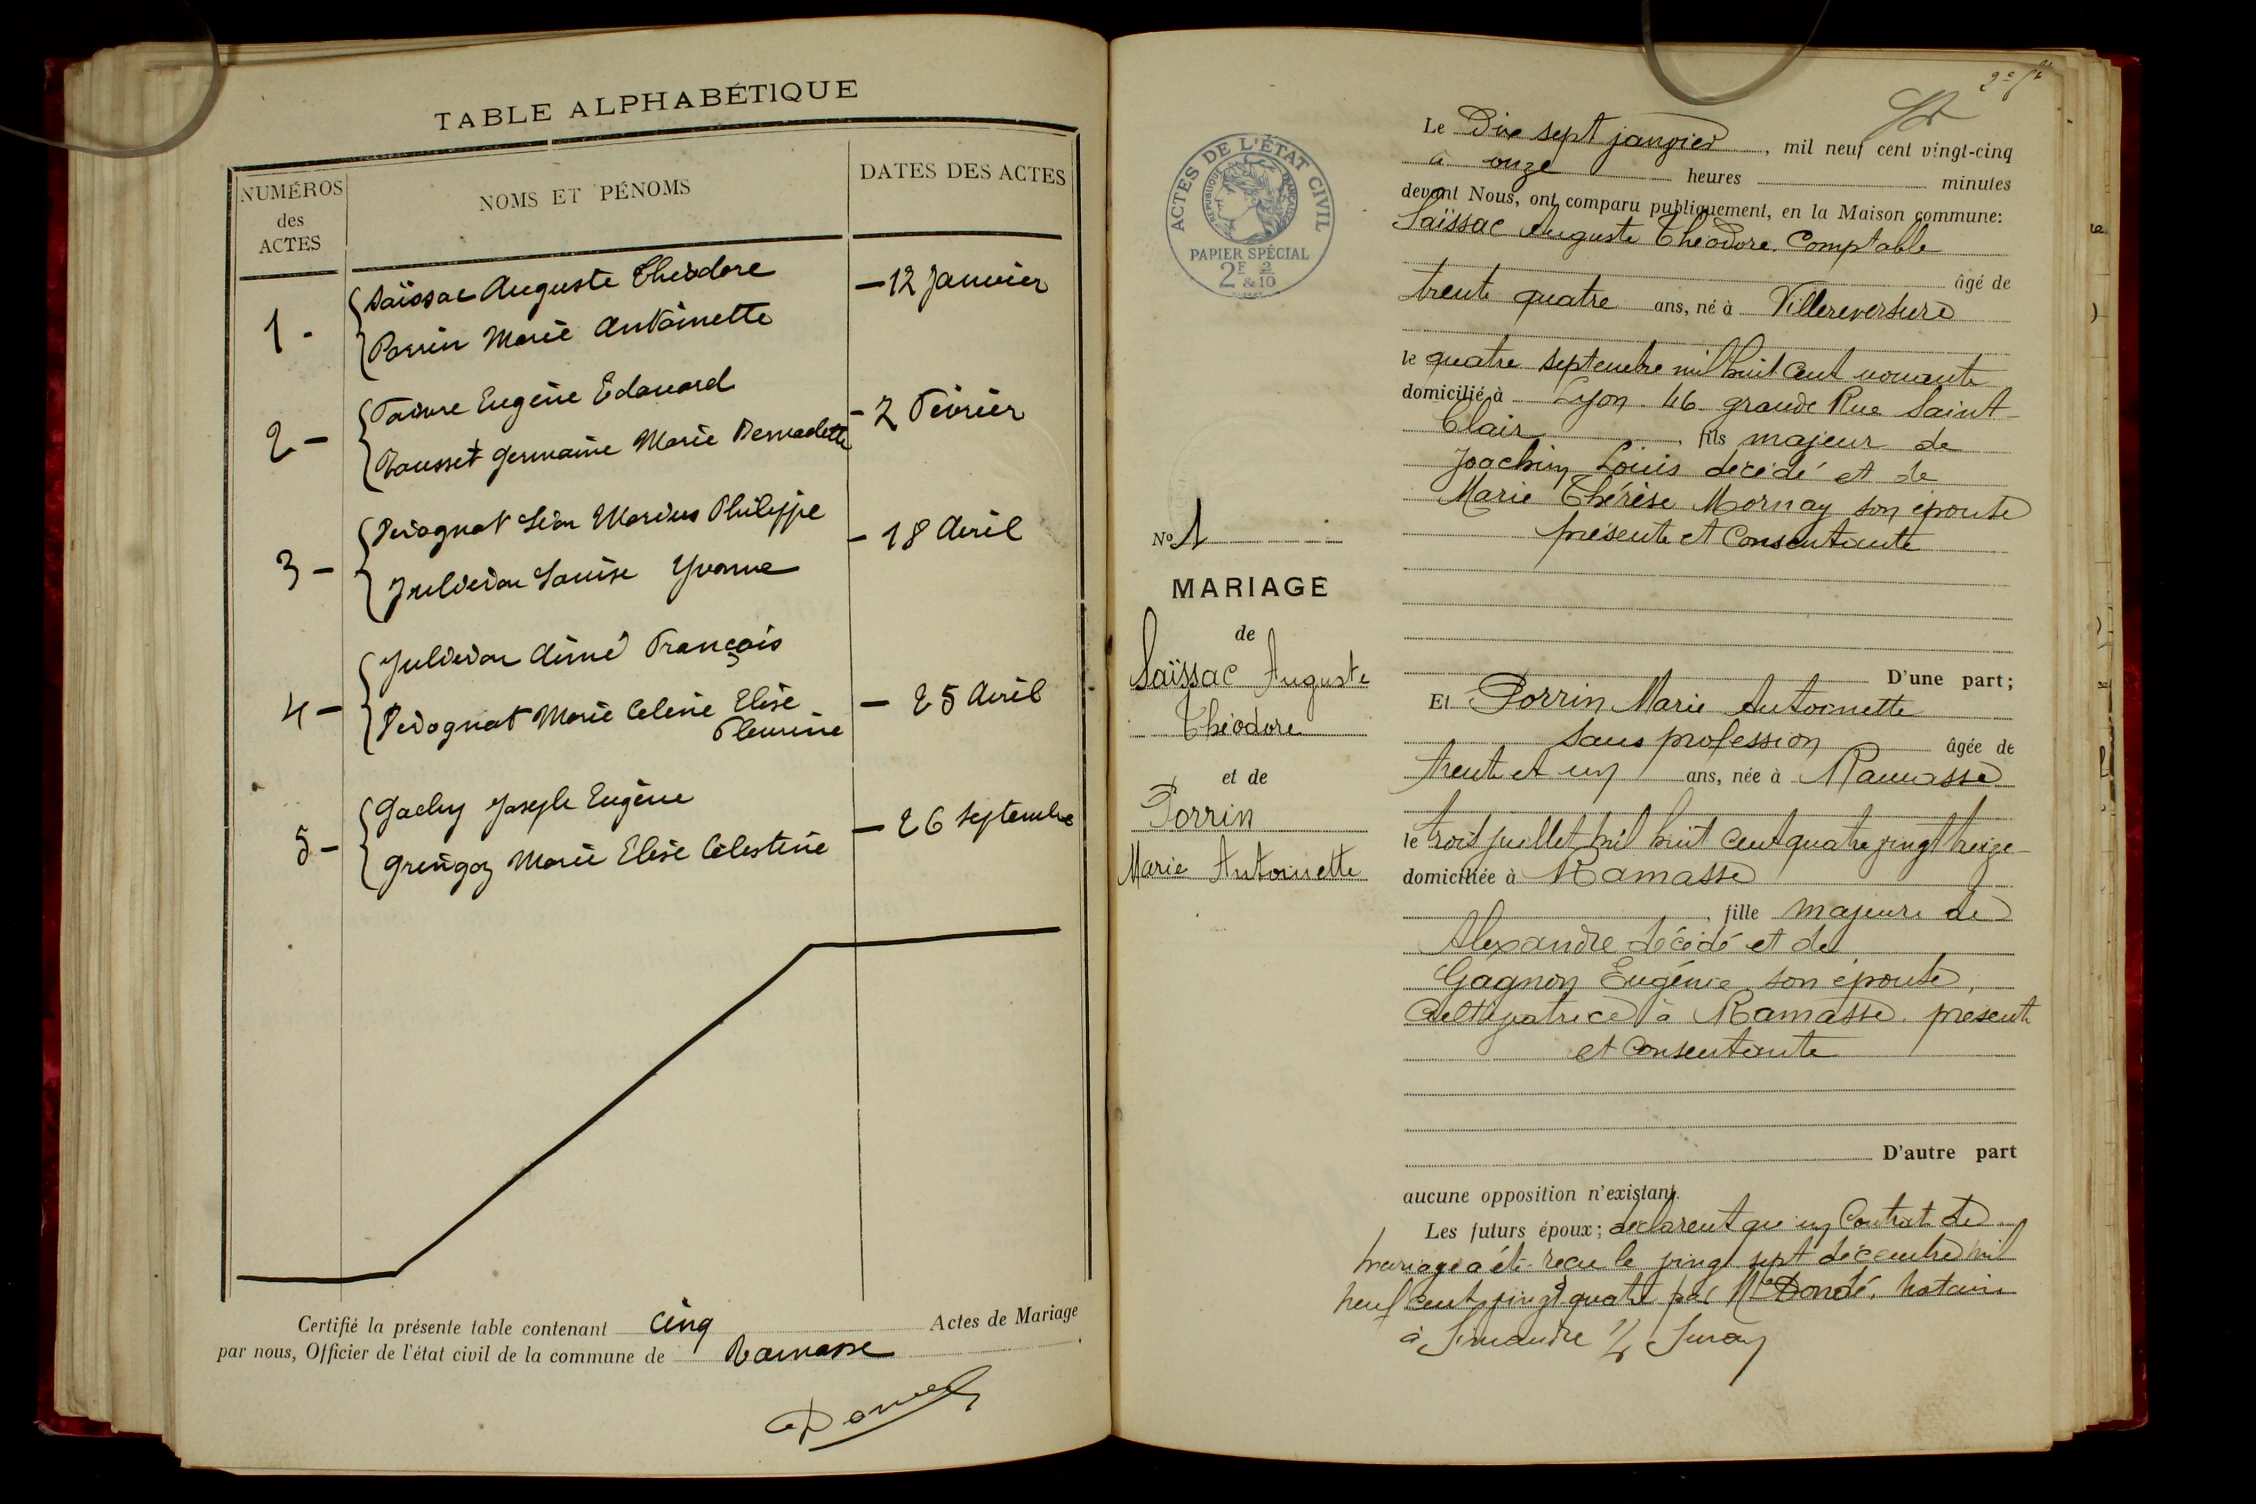 TABLE ALPHABÉTIQUE
NUMÉROS
des
ACTES
NOMS ET PÉNOMS
DATES DES ACTES
1 -
Saïssac Auguste Théodore
Porrin Marie Antoinette
- 12 Janvier
2 -
Favre Eugène Edouard
Rousset Germaine Marie Bernadette
- 2 Février
3 -
Perdognat Léon Marius Philippe
Juliéron Louise Yvonne
- 18 Avril
4 -
Juliéron Aimé François
Marie Celine Elise
Fleurine
- 25 Avril
5 -
Joseph Eugène
Gringoz Marie Elise Célestine
- 26 Septembre
Certifié la présente table contenant cinq Actes de Mariage
par nous, Officier de l'état civil de la commune de Ramasse
ACTES DE L'ÉTAT CIVIL
RÉPUBLIQUE FRANÇAISE
PAPIER SPÉCIAL
2F & 2/10
No 1
MARIAGE
de
Saïssac Auguste
Théodore
et de
Porrin
Marie Antoinette
Le Dix sept janvier, mil neuf cent vingt-cinq
à onze heures minutes
devant Nous, ont comparu publiquement, en la Maison commune:
Saïssac Auguste Théodore. Comptable
âgé de
trente quatre ans, né à Villereversure
le quatre septembre mil huit cent nonante
domicilié à Lyon. 46 grande Rue Saint
Clair, fils majeur de
Joachim Louis décédé et de
Marie Thérèse Mornay son épouse
présente et consentante
D'une part;
Et Porrin Marie Antoinette
Sans profession âgée de
trente et un ans, née à Ramasse
le trois juillet mil huit cent quatre vingt treize
domiciliée à Ramasse
, fille majeure de
Alexandre décédé et de
Gagnon Eugénie son épouse,
Cultivatrice à Ramasse. présente
et consentante
D'autre part
aucune opposition n'existant.
Les futurs époux; déclarent qu'un Contrat de
mariage a été reçu le vingt sept décembre mil
neuf cent vingt quatre par Me Dondé, notaire
à Simandre s/ Suran